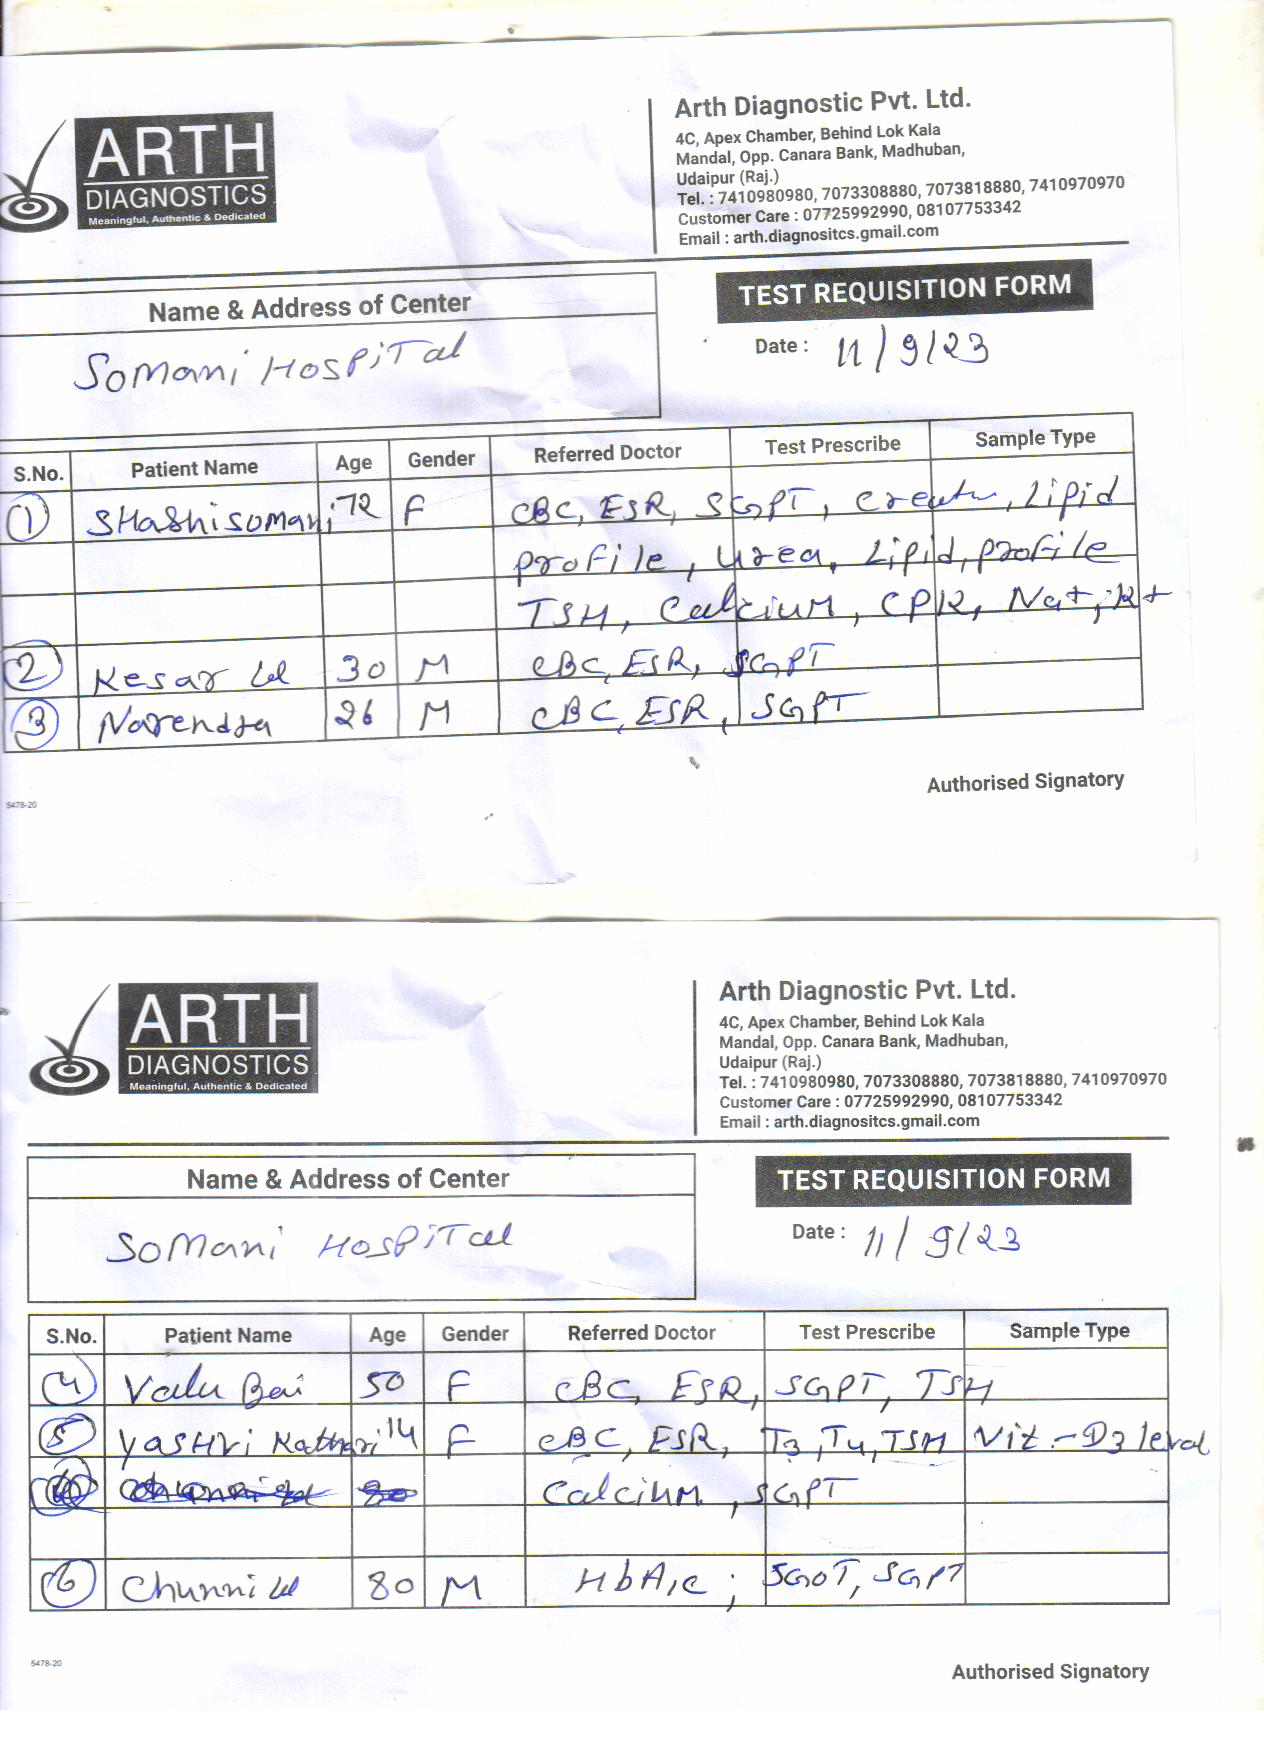 ARTH
DIAGNOSTICS
Meaningful, Authentic & Dedicated
Arth Diagnostic Pvt. Ltd.
4C, Apex Chamber, Behind Lok Kala
Mandal, Opp. Canara Bank, Madhuban,
Udaipur (Raj.)
Tel. : 7410980980, 7073308880, 7073818880, 7410970970
Customer Care : 07725992990, 08107753342
Email : arth.diagnositcs.gmail.com
Name & Address of Center
TEST REQUISITION FORM
Somani Hospital
Date : 11/9/23
S.No. Patient Name Age Gender Referred Doctor Test Prescribe Sample Type
1 SHashi somani 72 F CBC, ESR, SGPT, Lipid
profile, urea, Lipid, profile
TSH, Calcium, CPK, Na+, K+
2 Kesar lal 30 M CBC, ESR, SGPT
3 Narendra 26 M CBC, ESR, SGPT
Authorised Signatory
5478-20
ARTH
DIAGNOSTICS
Meaningful, Authentic & Dedicated
Arth Diagnostic Pvt. Ltd.
4C, Apex Chamber, Behind Lok Kala
Mandal, Opp. Canara Bank, Madhuban,
Udaipur (Raj.)
Tel. : 7410980980, 7073308880, 7073818880, 7410970970
Customer Care : 07725992990, 08107753342
Email : arth.diagnositcs.gmail.com
Name & Address of Center
TEST REQUISITION FORM
Somani Hospital
Date : 11/9/23
S.No. Patient Name Age Gender Referred Doctor Test Prescribe Sample Type
4 Valu Bai 50 F CBC, ESR, SGPT, TSH
5 Yashvi Kothari 14 F CBC, ESR, T3, T4, TSH Vit.-D3 leval
Calcium, SGPT
6 Chunni lal 80 M HbA1c; SGOT, SGPT
5478-20
Authorised Signatory